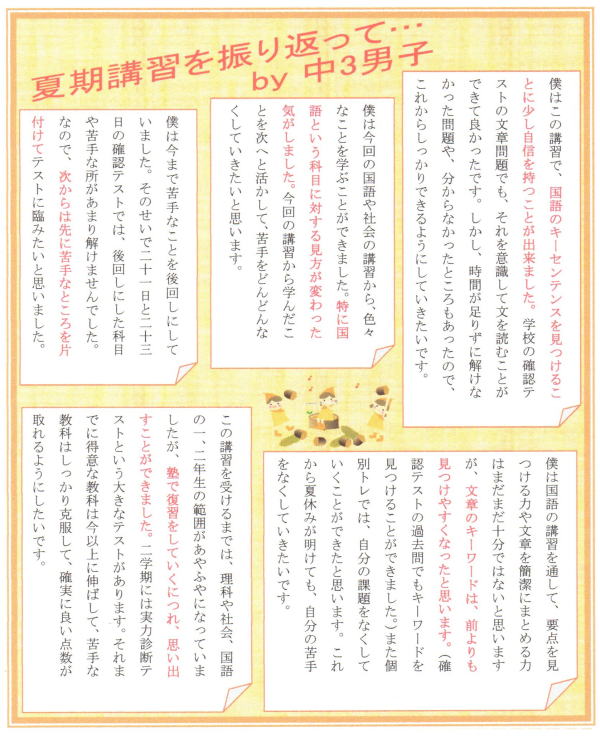 夏期講習を振り返って…
by 中3男子
僕はこの講習で、国語のキーセンテンスを見つけるこ
とに少し自信を持つことが出来ました。学校の確認テ
ストの文章問題でも、それを意識して文を読むことが
できて良かったです。しかし、時間が足りずに解けな
かった問題や、分からなかったところもあったので、
これからしっかりできるようにしていきたいです。
僕は今回の国語や社会の講習から、色々
なことを学ぶことができました。特に国
語という科目に対する見方が変わった
気がしました。今回の講習から学んだこ
とを次へと活かして、苦手をどんどんな
くしていきたいと思います。
僕は今まで苦手なことを後回しにして
いました。そのせいで二十一日と二十三
日の確認テストでは、後回しにした科目
や苦手な所があまり解けませんでした。
なので、次からは先に苦手なところを片
付けてテストに臨みたいと思いました。
僕は国語の講習を通して、要点を見
つける力や文章を簡潔にまとめる力
はまだまだ十分ではないと思います
が、文章のキーワードは、前よりも
見つけやすくなったと思います。（確
認テストの過去問でもキーワードを
見つけることができました。）また個
別トレでは、自分の課題をなくして
いくことができたと思います。これ
から夏休みが明けても、自分の苦手
をなくしていきたいです。
この講習を受けるまでは、理科や社会、国語
の一、二年生の範囲があやふやになっていま
したが、塾で復習をしていくにつれ、思い出
すことができました。二学期には実力診断テ
ストという大きなテストがあります。それま
でに得意な教科は今以上に伸ばして、苦手な
教科はしっかり克服して、確実に良い点数が
取れるようにしたいです。